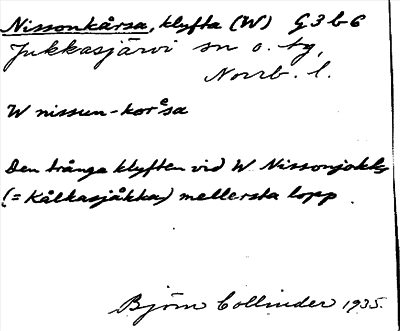 Nissonkårsa, klyfta (W) G3b6
Jukkasjärvi sn o. tg,
Norrb. l.
W nissun-korᵒsa
Den trånga klyften vid W Nissonjokk
(= Kålkasjåkka) mellersta lopp.
Björn Collinder 1935.